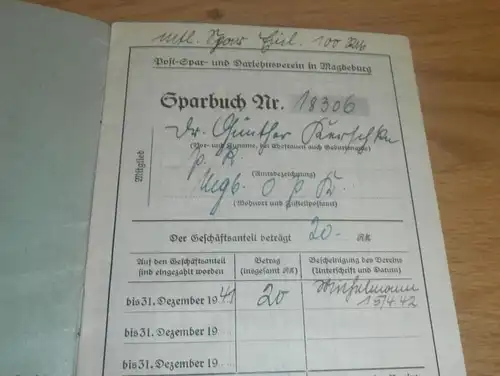 mtl. Spar Einl. 100 RM
Post-Spar- und Darlehnsverein in Magdeburg
Sparbuch Nr. 18306
Dr. Günther
(Vor- und Zuname, bei Ehefrauen auch Geburtsname)
Mitglied
p. R.
(Amtsbezeichnung)
Mgb. O P K.
(Wohnort und Zustellpostamt)
Der Geschäftsanteil beträgt 20.- RM
Auf den Geschäftsanteil sind eingezahlt worden
Betrag (insgesamt RM)
Bescheinigung des Vereins (Unterschrift und Datum)
bis 31. Dezember 1941
20
15/4 42
bis 31. Dezember 19
bis 31. Dezember 19